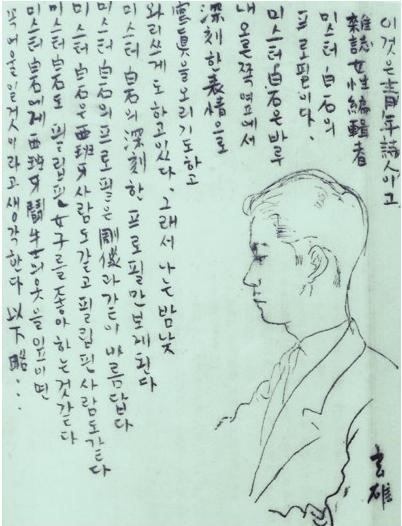 이것은 靑年詩人이고
雜誌女性編輯者
미스터 白石의
프로필이다.
미스터 白石은 바루
내 오른쪽 옆에서
深刻한 表情으로
寫眞을 오리기도 하고
와리쓰게도 하고 있다. 그래서 나는 밤낮
미스터 白石의 深刻한 프로필만 보게 된다
미스터 白石의 프로필은 彫像과 같이 아름답다
미스터 白石은 西班牙 사람도 같고 필립핀 사람도 같다
미스터 白石도 필립핀 女子를 좋아하는 것 같다
미스터 白石에게 西班牙 鬪牛士의 옷을 입히면
꼭 어울일 것이라고 생각한다 以下略...
玄雄